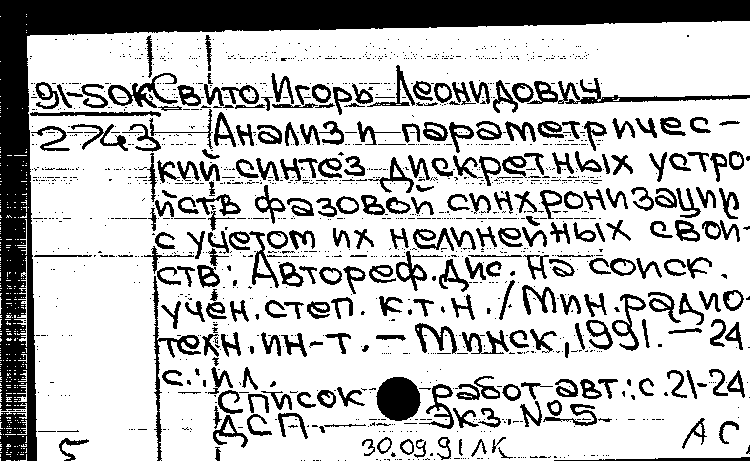 91-50К Свито, Игорь Леонидович.
2743 Анализ и параметричес-
кий синтез дискретных устро-
йств фазовой синхронизации
с учетом их нелинейных свой-
ств: Автореф. дис. на соиск.
учен. степ. к.т.н. / Мин. радио-
техн. ин-т. - Минск, 1991. - 24
с.: ил.
Список работ авт.: с. 21-24
ДСП. Экз. № 5.
АС
5 30.09.91 ЛК